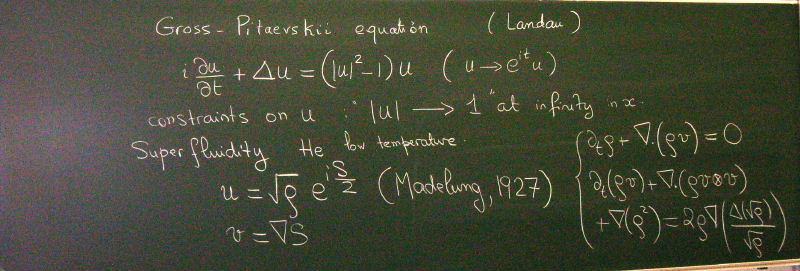 Gross-Pitaevskii equation (Landau)
i ∂u/∂t + Δu = (|u|²-1)u (u → e^{it}u)
constraints on u : "|u| → 1" at infinity in x.
Superfluidity He low temperature.
u = √ρ e^{iS/2} (Madelung, 1927)
v = ∇S
∂ₜρ + ∇.(ρv) = 0
∂ₜ(ρv) + ∇.(ρv⊗v)
+ ∇(ρ²) = 2ρ∇(Δ(√ρ)/√ρ)